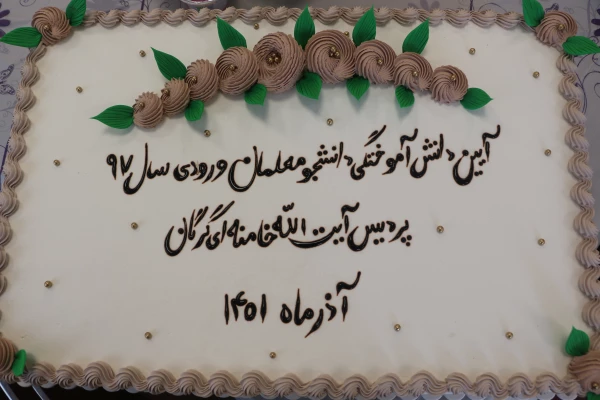 آیین دانش آموختگی دانشجو معلمان ورودی سال ۹۷
پردیس آیت الله خامنه ای گرگان
آذر ماه ۱۴۰۱